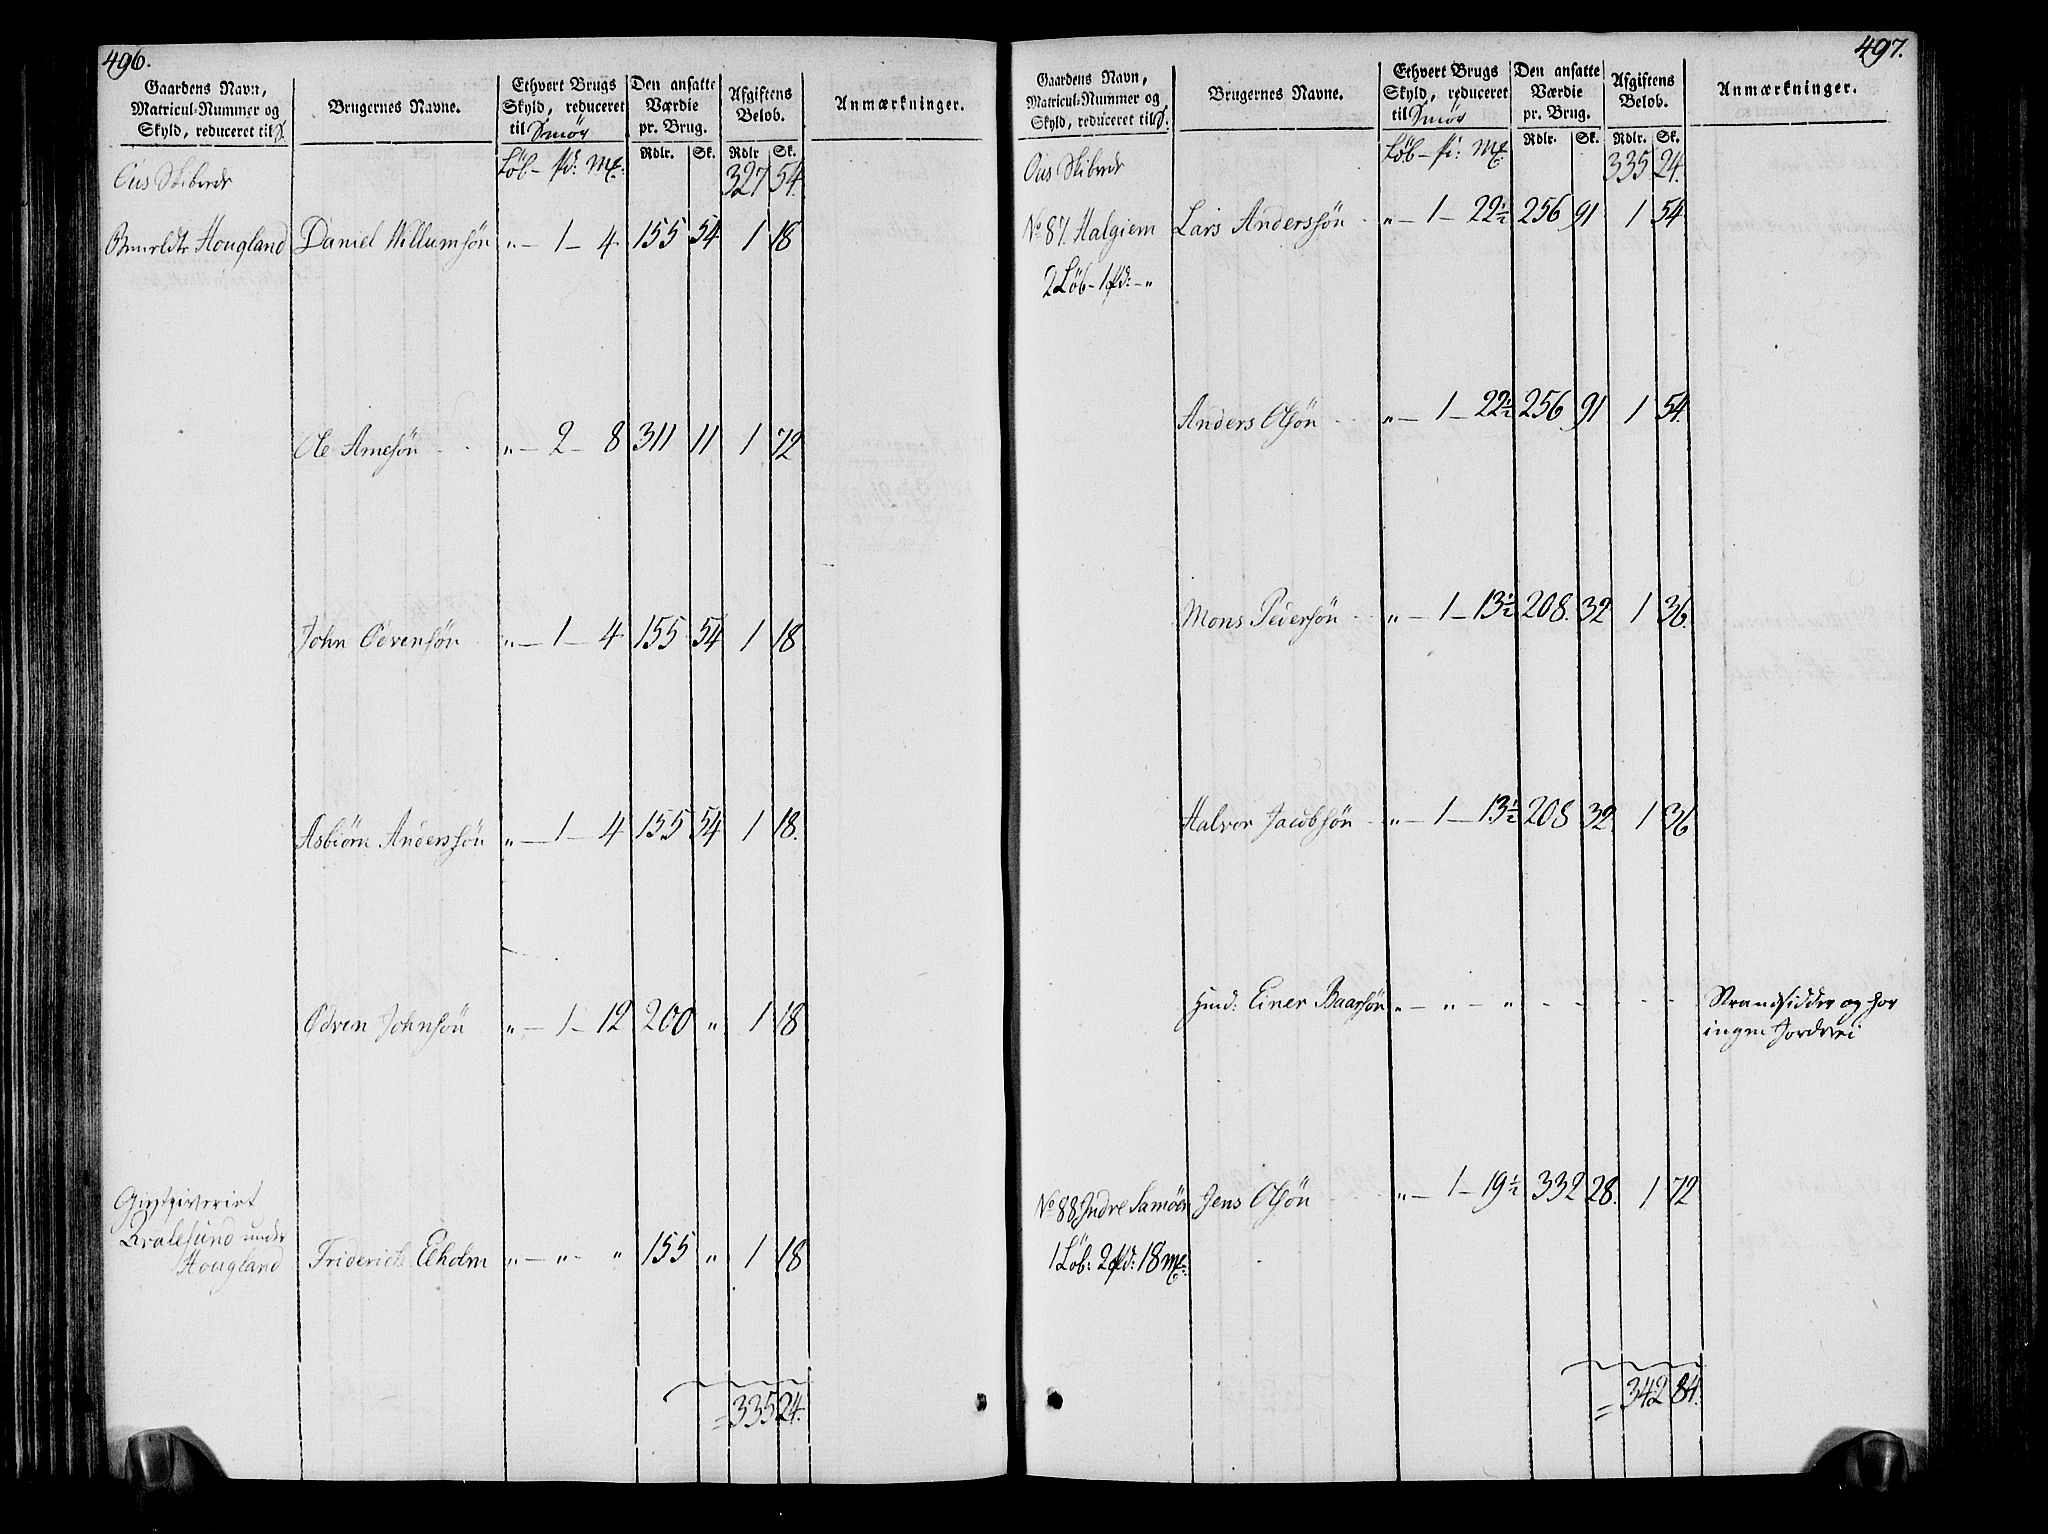 496.
Gaardens Navn,
Matricul-Nummer og
Skyld, reduceret til
Brugernes Navne.
Ethvert Brugs
Skyld, reduceret
til Smör
Den ansatte
Værdie
pr. Brug.
Afgiftens
Beløb.
Anmærkninger.
Rdlr. Sk. Rdlr Sk.
Ous Skibrede Löb - pd: Mk: 327 54.
Hougland Daniel Willumsön „ - 1 - 4 155 54 1 18
Ole Arnesön „ - 2 - 8 311 11 1 72
John Ödvensön „ - 1 - 4 155 54 1 18
Asbiörn Anderssön „ - 1 - 4 155 54 1 18.
Ödven Johnsön „ - 1 - 12 200 „ 1 18
Giestgiveriet
Qvalesund under
Hougland Friderich Eeholm „ - „ - „ 155 „ 1 18
= 335 24.
497.
Gaardens Navn,
Matricul-Nummer og
Skyld, reduceret til
Brugernes Navne.
Ethvert Brugs
Skyld, reduceret
til Smör
Den ansatte
Værdie
pr. Brug.
Afgiftens
Beløb.
Anmærkninger.
Rdlr. Sk. Rdlr. Sk.
Ous Skibrede Löb - pd: Mk: 335 24.
No 87. Halgiem Lars Anderssön „ - 1 - 22½ 256 91 1 54.
2 Löb - 1 pd: - „
Anders Olsön „ - 1 - 22½ 256 91 1 54.
Mons Pedersön „ - 1 - 13½ 208. 32 1 36.
Halvor Jacobsön „ - 1 - 13½ 208 32. 1 36
Huusmd: Einer Baarsön „ - „ - „ - - - - Strandsidder og har
ingen Jordvei
No 88 Indre Samöen Jens Olsön „ - 1 - 19½ 332 28. 1 72
1 Löb: 2 pd: 18 mk:
= 342 84.